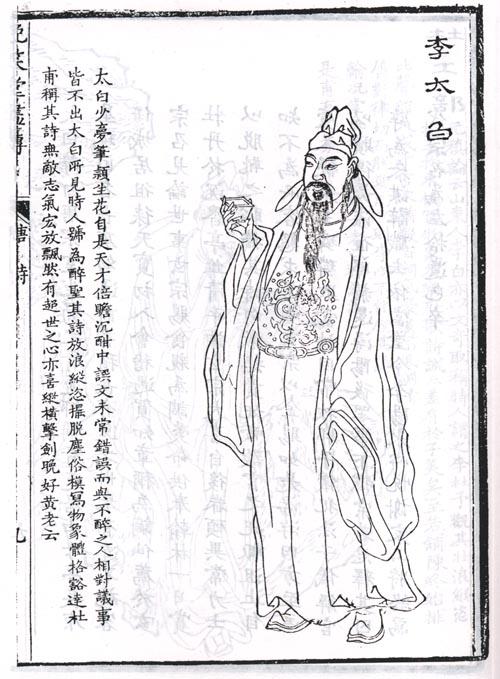 李太白
太白少夢筆頭生花自是天才倍贍沉酣中譔文未常錯誤而與不醉之人相對議事
皆不出太白所見時人號為醉聖其詩放浪縱恣擺脫塵俗模寫物象體格豁達杜
甫稱其詩無敵志氣宏放飄然有超世之心亦喜縱橫擊劍晚好黃老云
晚笑堂畫傳
唐
詩
九